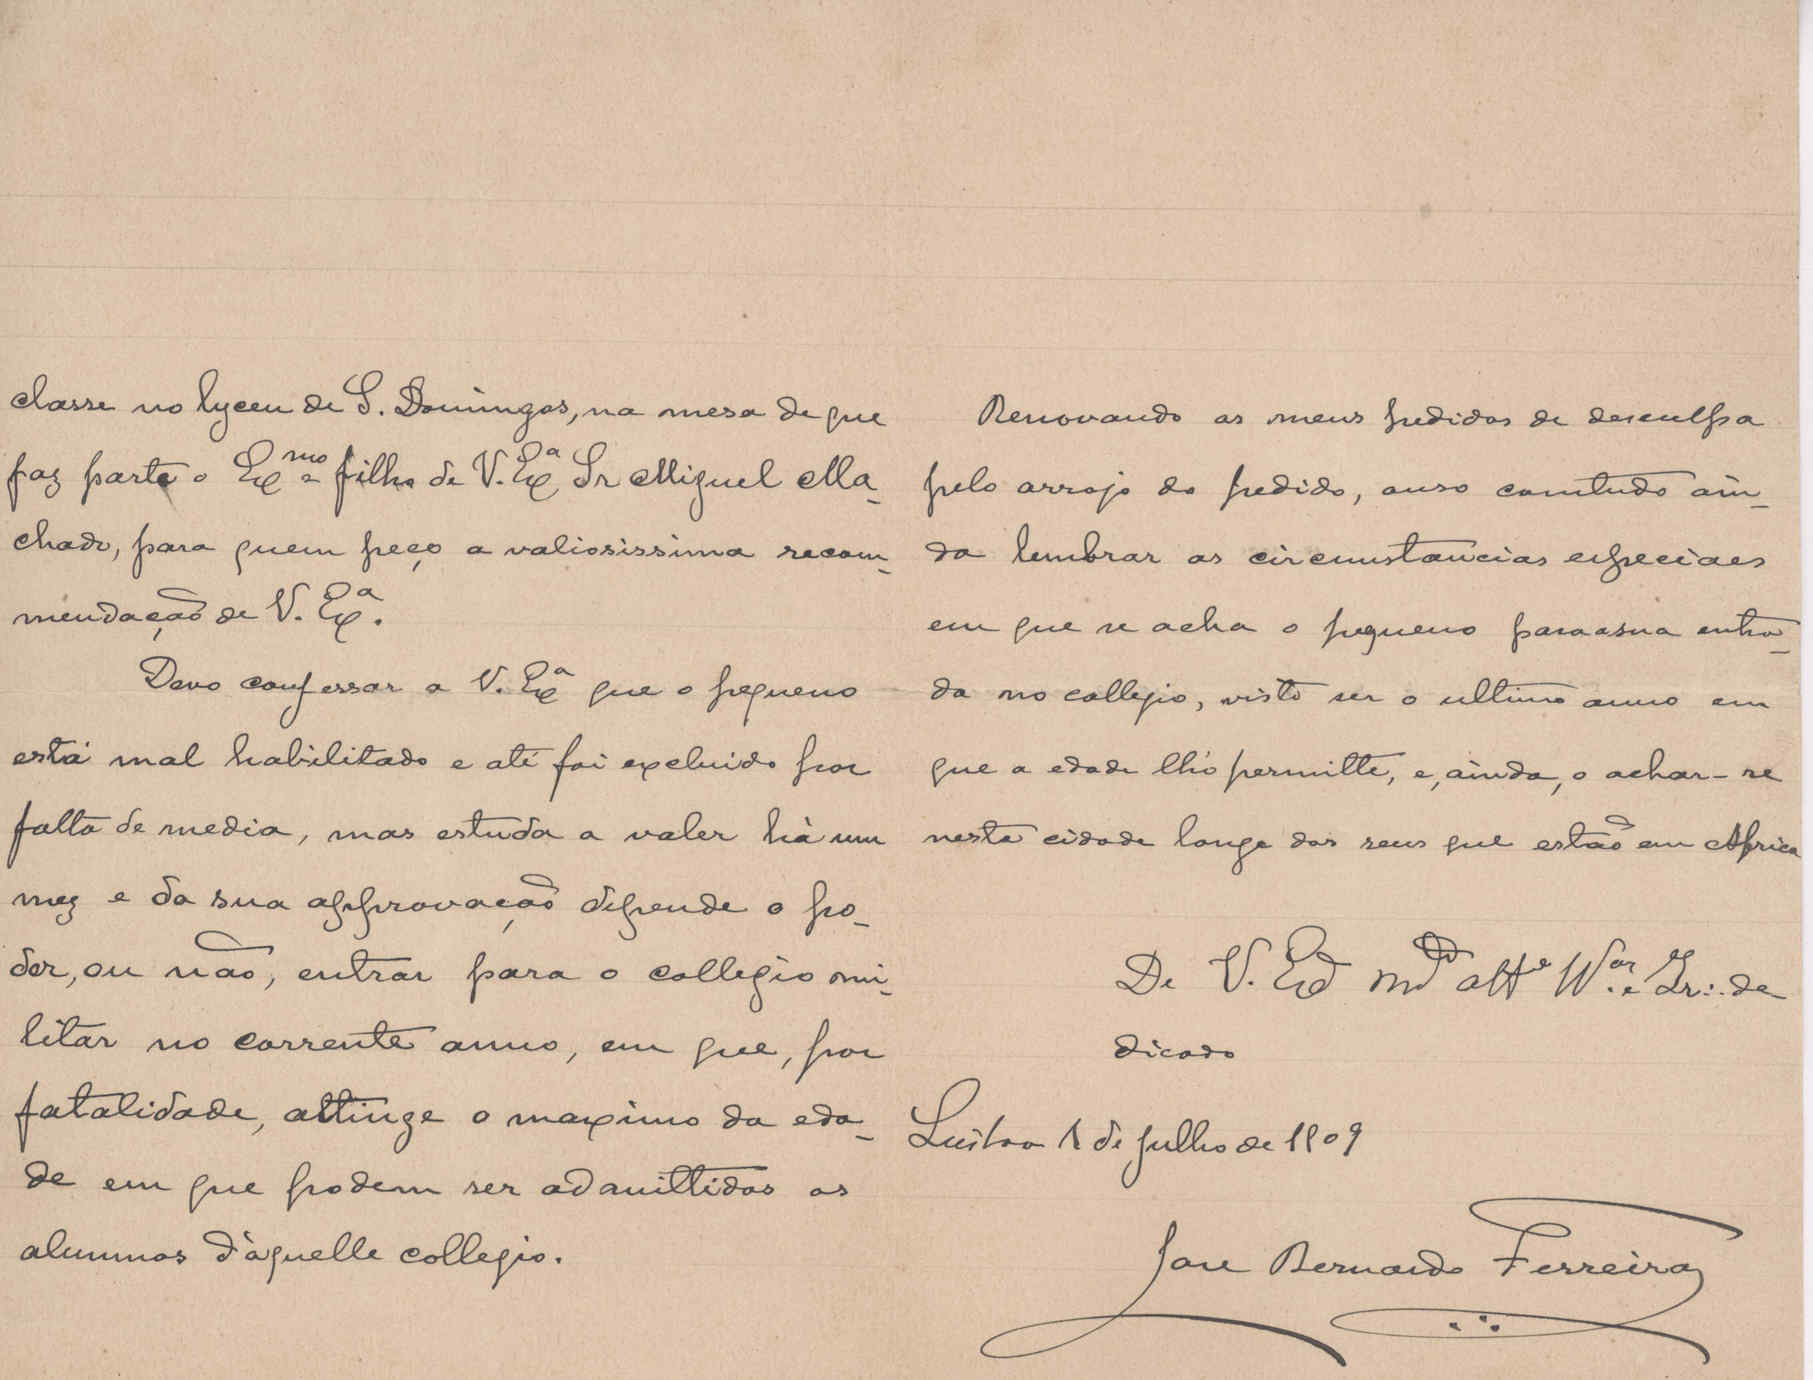 classe no lyceu de S. Domingos, na mesa de que
faz parte o Ex.mo filho de V. Ex.a Sr Miguel Ma-
chado, para quem peço a valiosissima recom-
mendação de V. Ex.a.
Devo confessar a V. Ex.a que o pequeno
está mal habilitado e até foi excluido por
falta de media, mas estuda a valer há um
mez e da sua approvação depende o po-
der, ou não, entrar para o collegio mi-
litar no corrente anno, em que, por
fatalidade, attinge o maximo da eda-
de em que podem ser admittidos os
alumnos d'àquelle collegio.
Renovando os meus pedidos de desculpa
pelo arrojo do pedido, ouso comtudo ain-
da lembrar as circumstancias especiaes
em que se acha o pequeno para a sua entra-
da no collegio, visto ser o ultimo anno em
que a edade lh'o permitte, e, ainda, o achar-se
nesta cidade longe dos seus que estão em Africa
De V. Ex.a m.to att.o V.or e Ir∴ de-
dicado
Lisboa 1 de julho de 1909
José Bernardo Ferreira